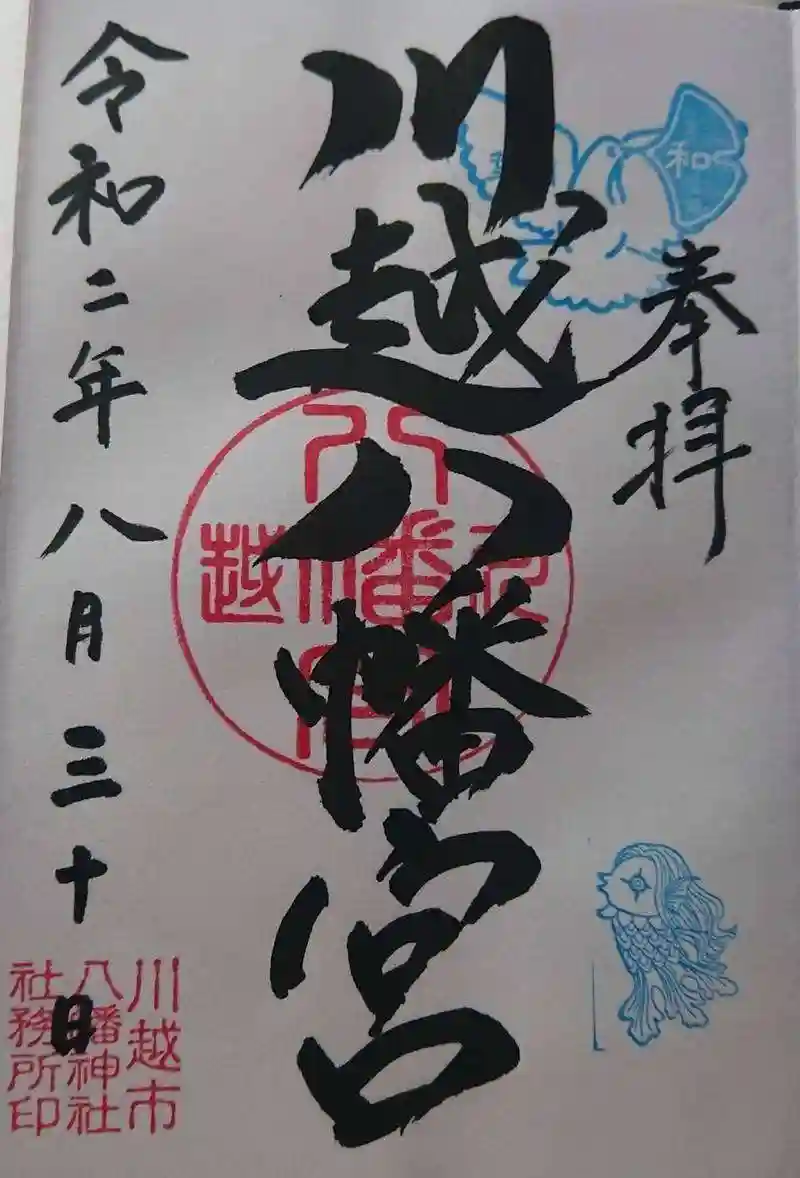 奉拝
和
川越八幡宮
八幡宮
川越
令和二年八月三十日
川越市
八幡神社
社務所印